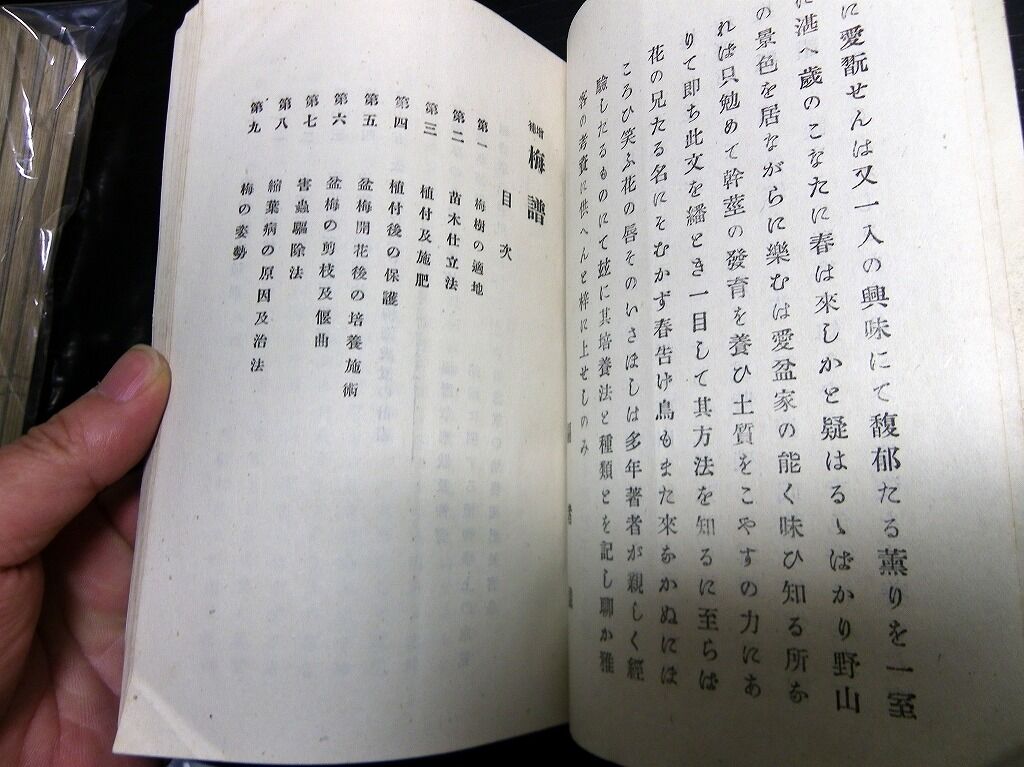 に愛翫せんは又一入の興味にて馥郁たる薫りを一室
に湛へ歳のこなたに春は來しかと疑はるゝばかり野山
の景色を居ながらに樂むは愛盆家の能く味ひ知る所な
れば只勉めて幹莖の發育を養ひ土質をこやすの力にあ
りて即ち此文を繙とき一目して其方法を知るに至らば
花の兄たる名にそむかず春告げ鳥もまた來なかぬにほ
ころひ笑ふ花の唇そのいさほしは多年著者が親しく經
驗したるものにて玆に其培養法と種類とを記し聊か雅
客の考資に供へんと梓に上せしのみ
增補 梅譜
目次
第一 梅樹の適地
第二 苗木仕立法
第三 植付及施肥
第四 植付後の保護
第五 盆梅開花後の培養施術
第六 盆梅の剪枝及偃曲
第七 害蟲驅除法
第八 縮葉病の原因及治法
第九 梅の姿勢